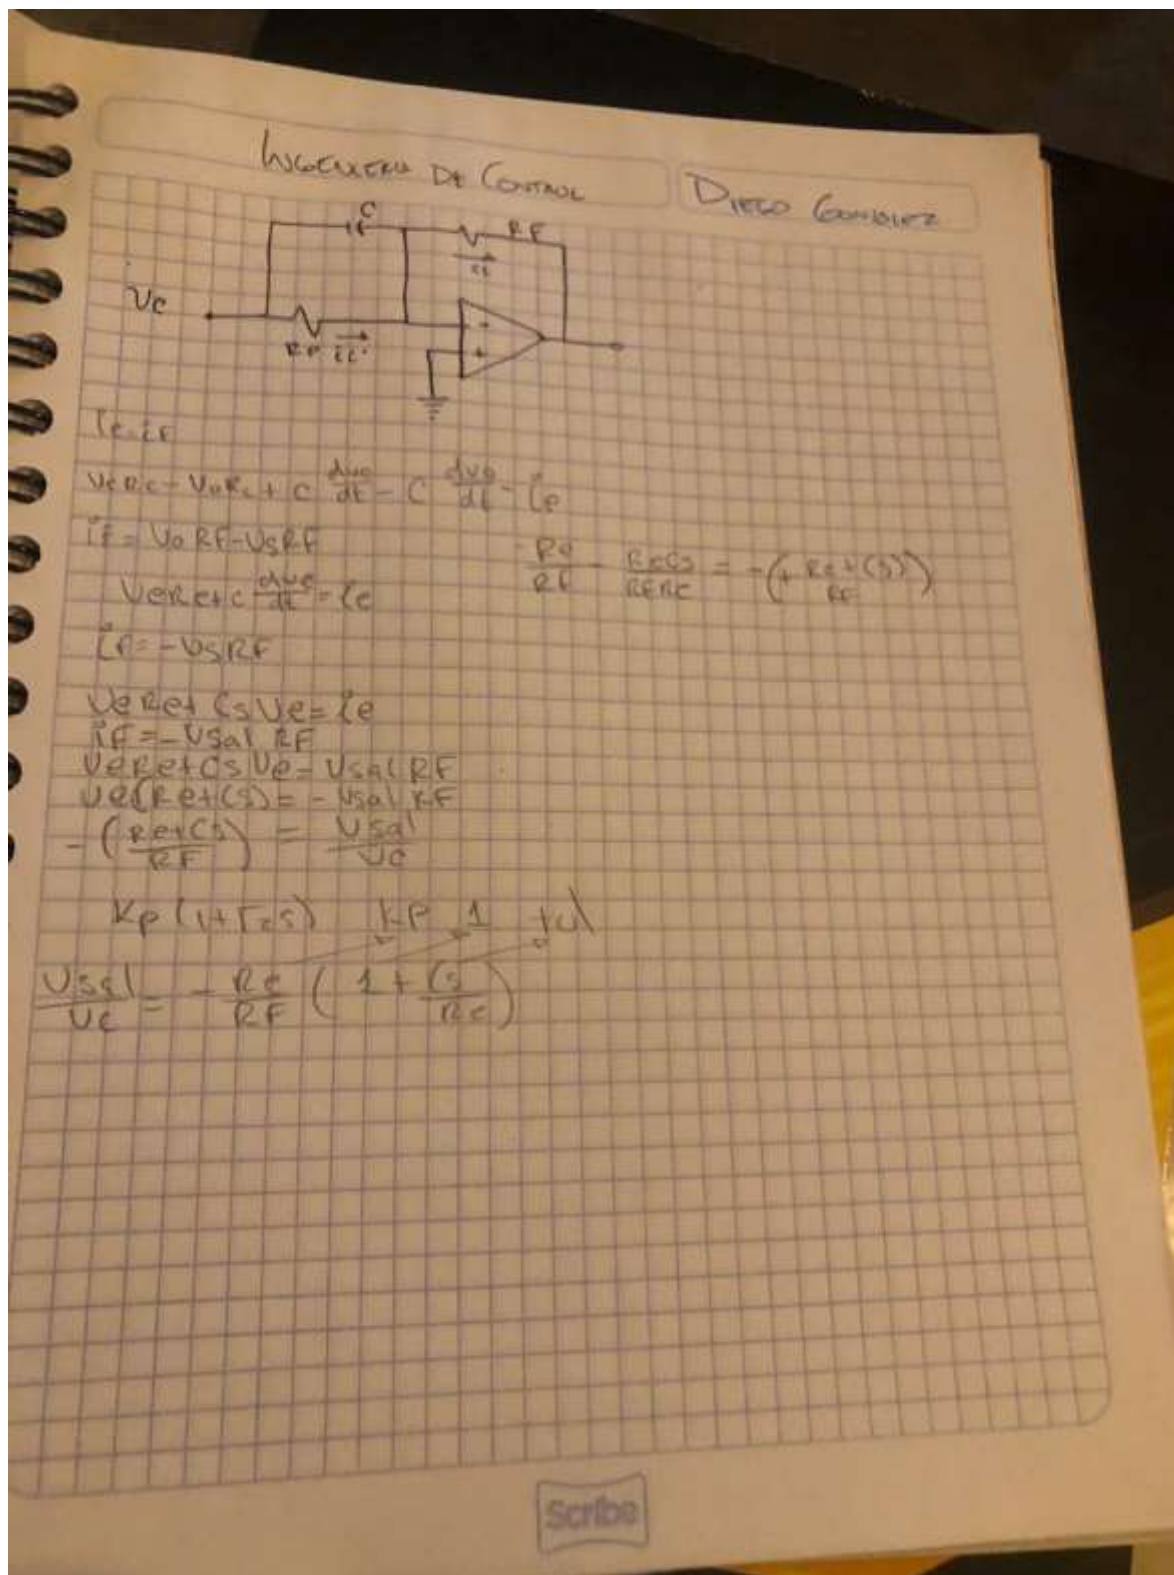 INGENIERIA DE CONTROL
DIEGO GONZALEZ
C
RF
if
Ve
Re ie
- +
+
ie=iF
VeRe-VoRe+C dve/dt - C dvo/dt = ie
iF=VoRF-VsRF
-Re/RF - ReCs/RFRe = -(+Re+Cs)/RF)
VeRe+C dve/dt = ie
iF=-VsRF
VeRe+CsVe=ie
iF=-Vsal RF
VeRe+CsVe-VsalRF
Ve(Re+Cs)=-VsalRF
-(Re+Cs/RF) = Vsal/Ve
Kp(1+Tds) KP 1 td
Vsal/Ve = -Re/RF (1+Cs/Re)
Scribe